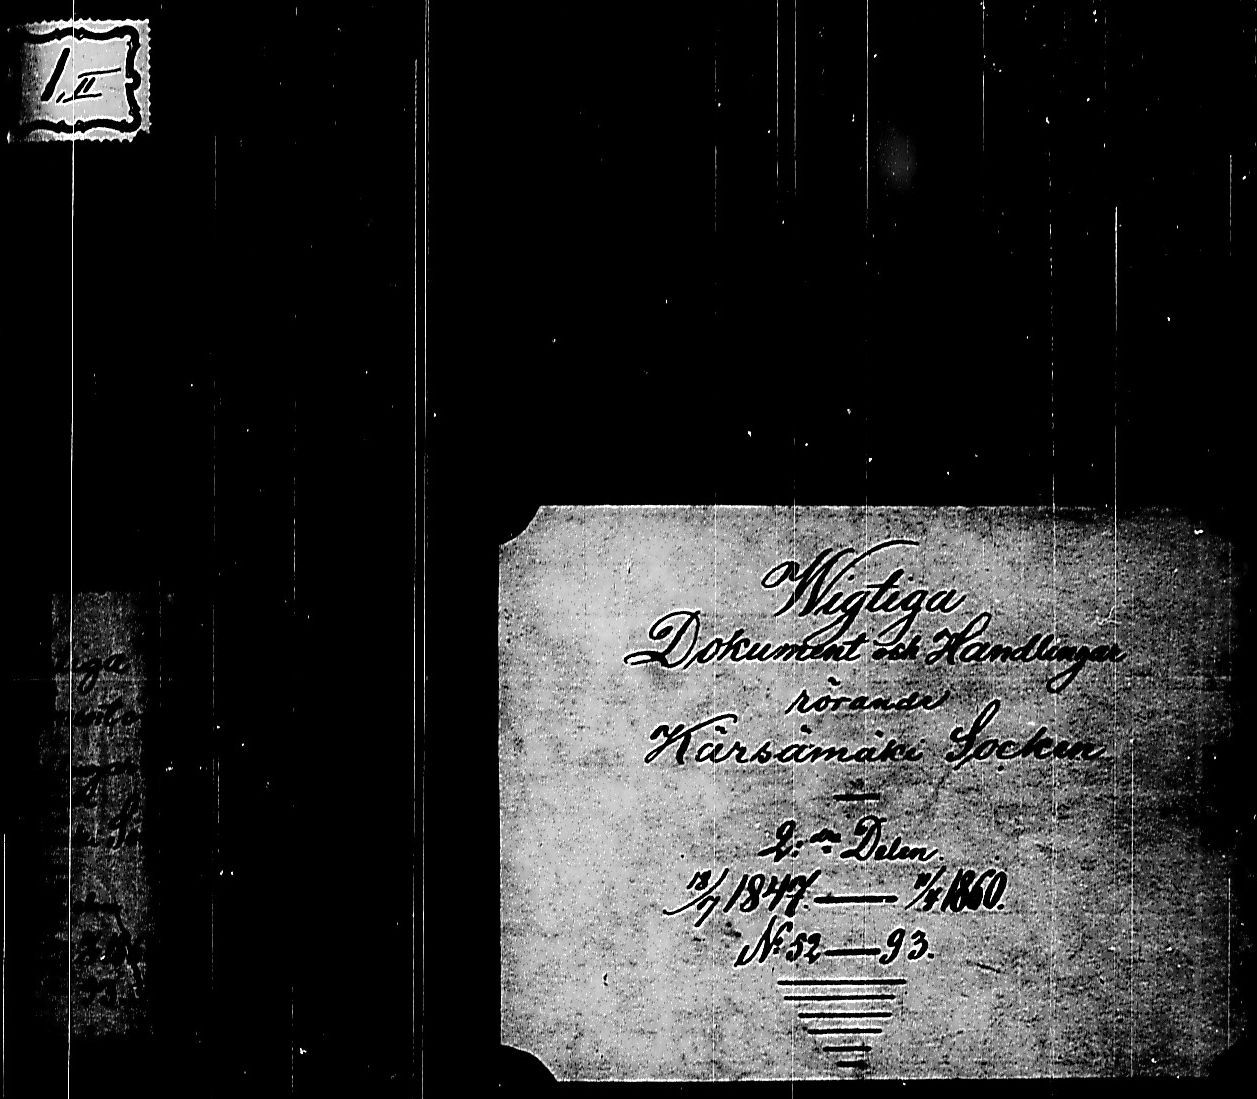 1, II
Wigtiga
Dokument och Handlingar
rörande
Kärsämäki Socken
2:dra Delen.
18/7 1847. — 11/4 1860.
No 52 — 93.